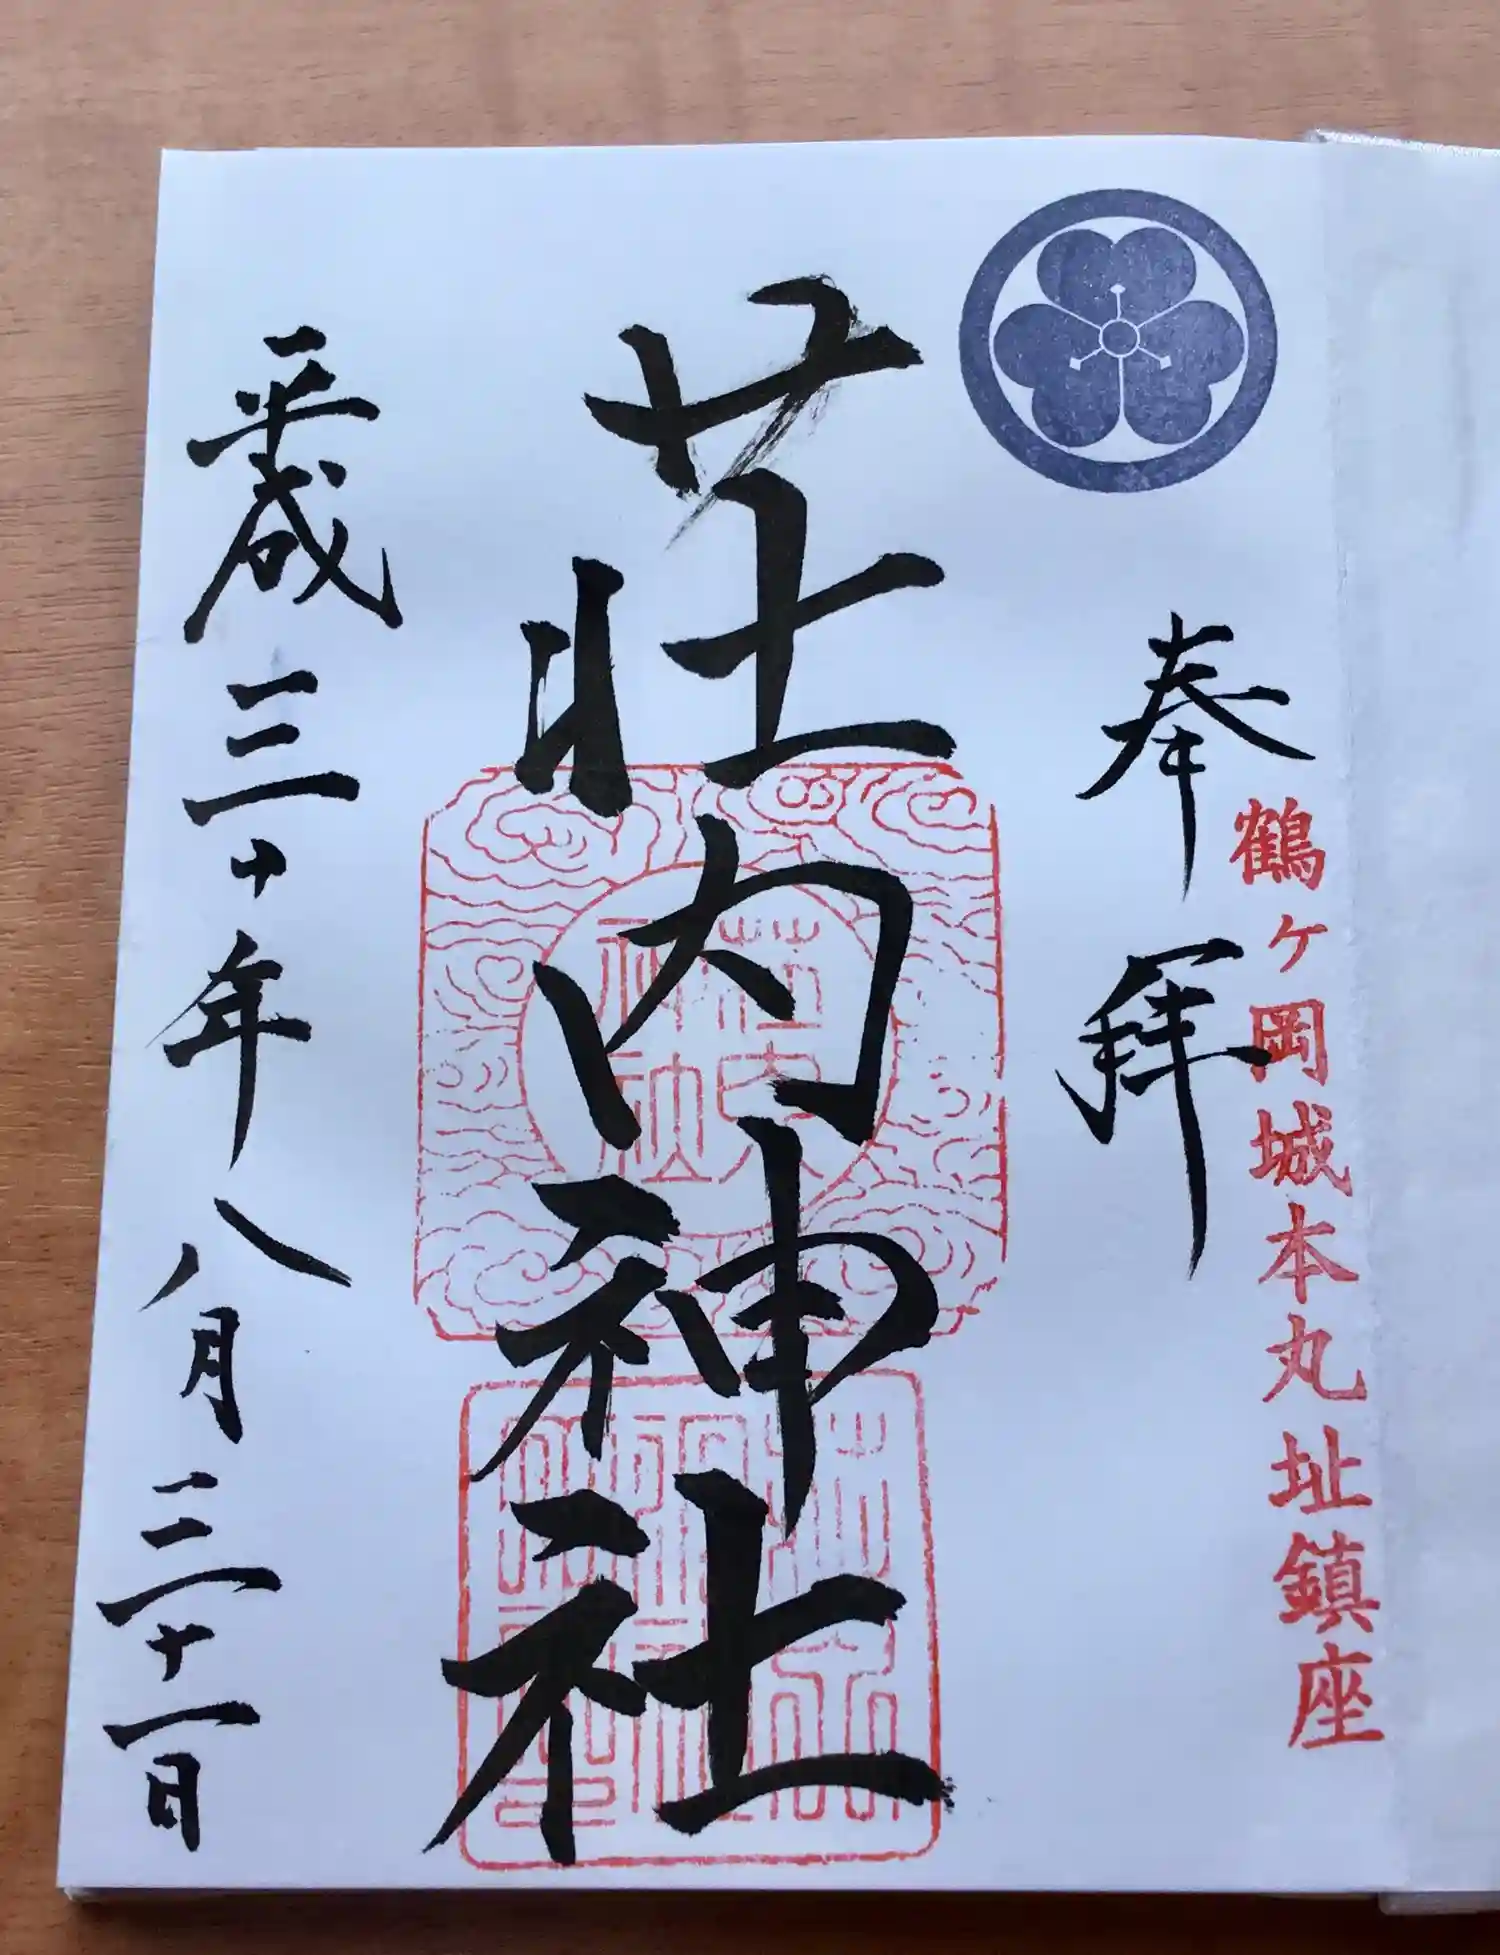 鶴ヶ岡城本丸址鎮座
奉拝
荘内神社
荘内
神社
平成三十年八月三十一日